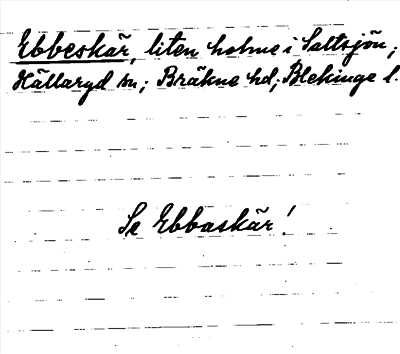 Ebbeskär, liten holme i Saltsjön;
Hällaryd sn; Bräkne hd; Blekinge l.
Se Ebbaskär!